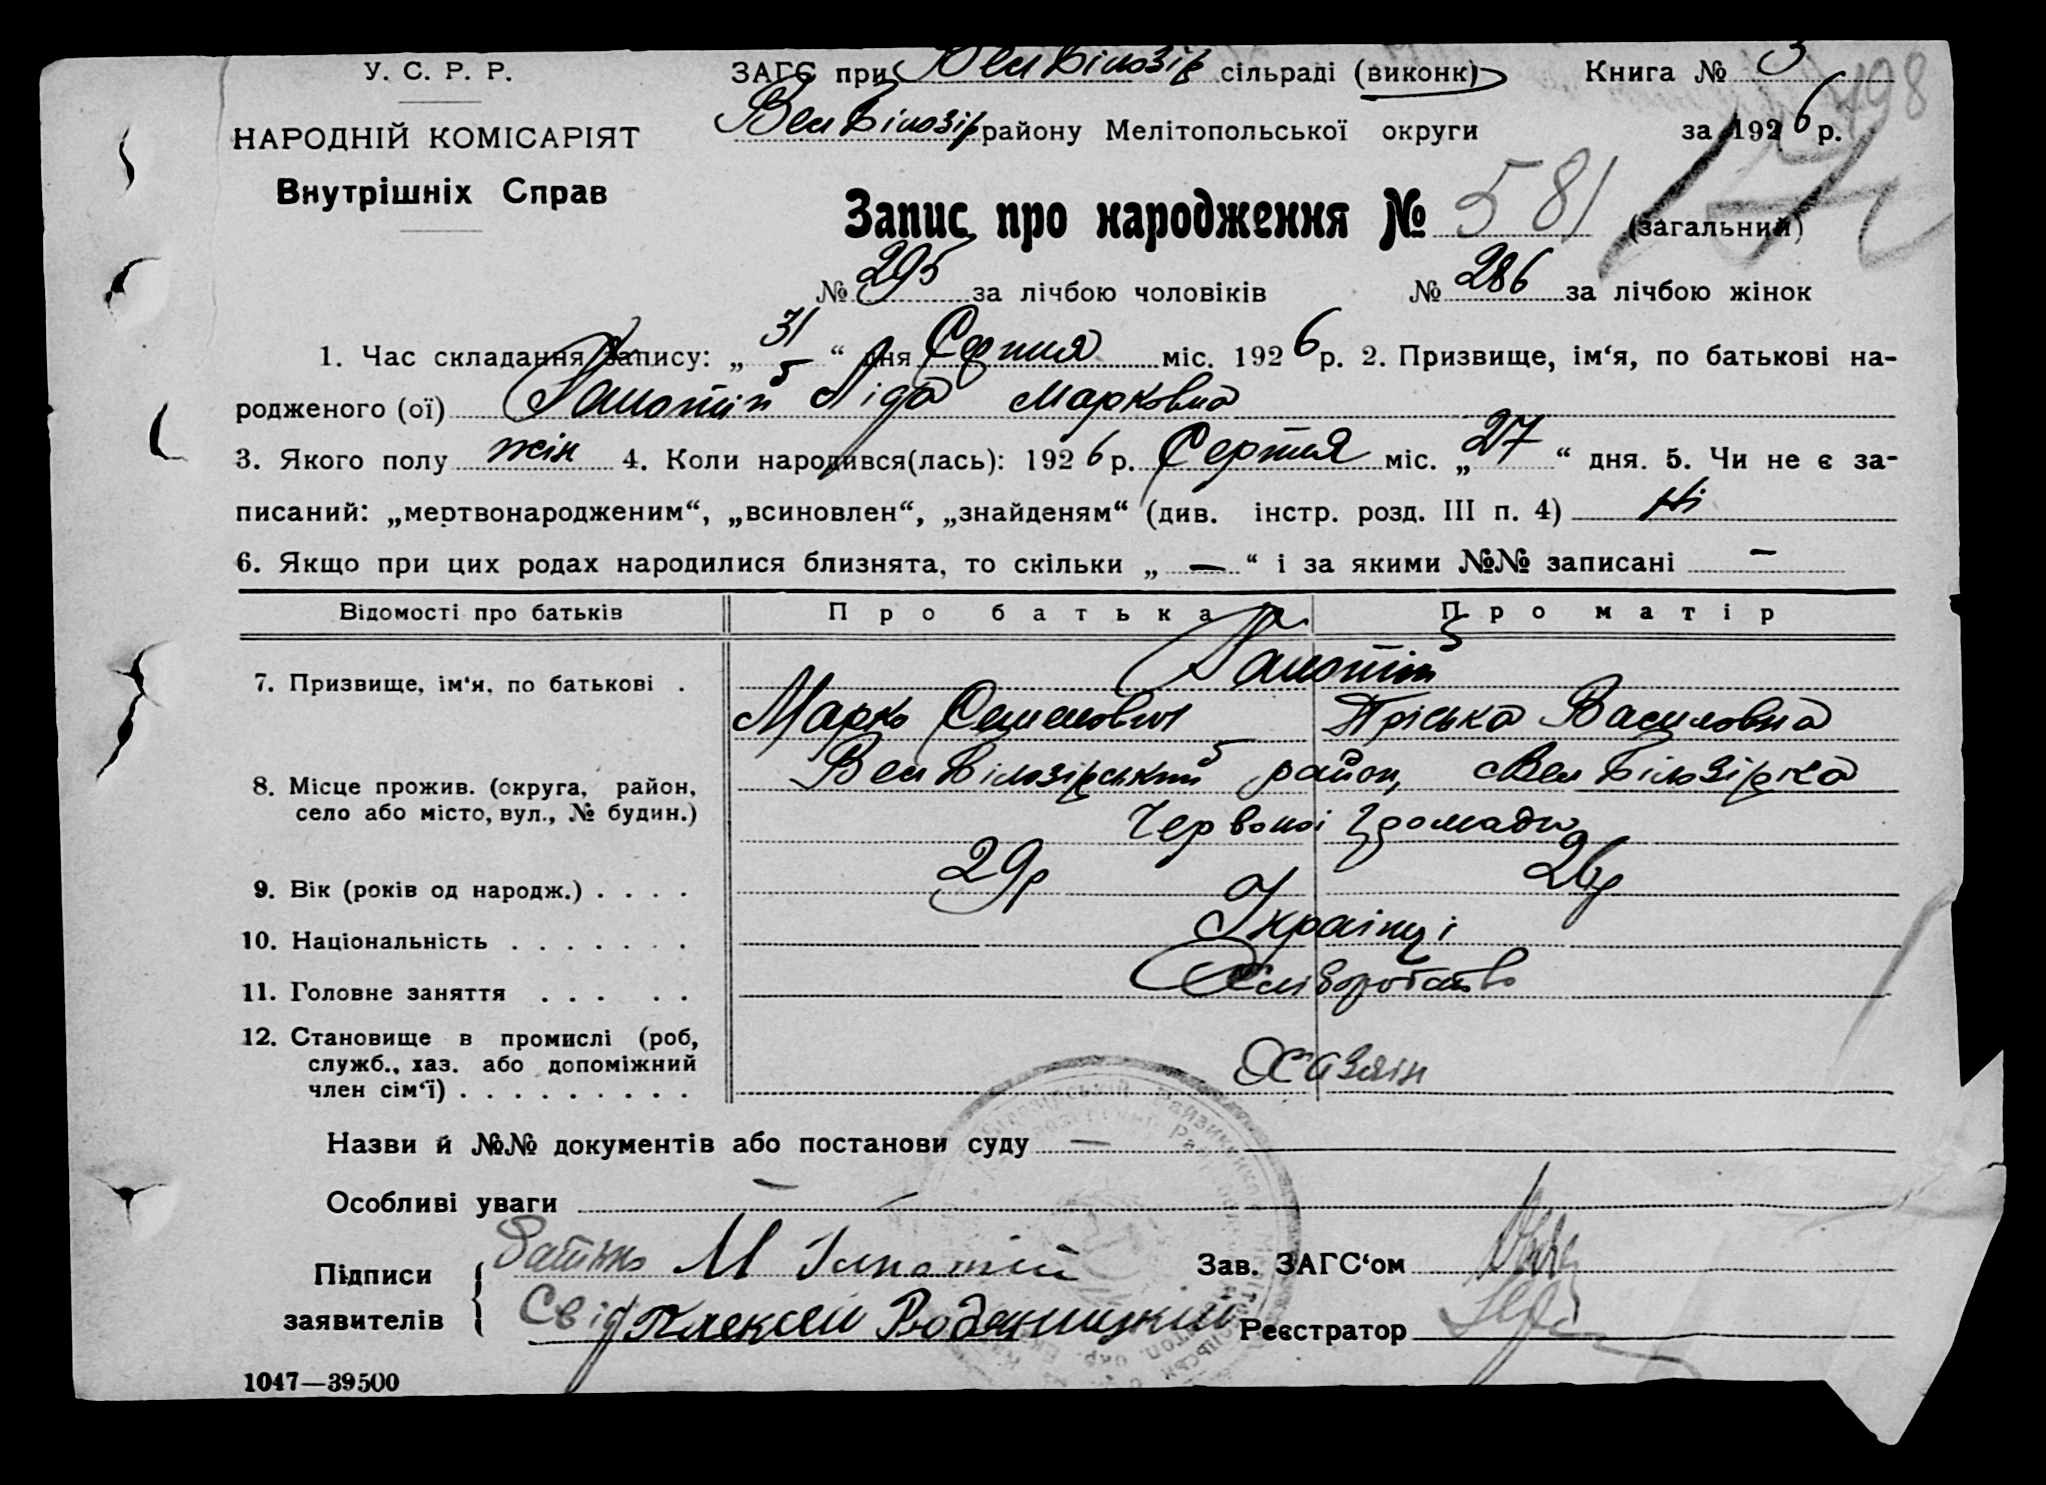 У. С. Р. Р.
НАРОДНІЙ КОМІСАРІЯТ
Внутрішніх Справ
ЗАГС при Вел Білозір сільраді (виконк)
Книга № 3
498
Вел Білозір району Мелітопольської округи
за 1926 р.
Запис про народження № 581 (загальний)
№ 295 за лічбою чоловіків № 286 за лічбою жінок
1. Час складання запису: „31“ дня Серпня міс. 1926 р. 2. Призвище, ім‘я, по батькові на-
родженого (ої) Ліда Марковна
3. Якого полу жін 4. Коли народився(лась): 1926 р. Серпня міс. „27“ дня. 5. Чи не є за-
писаний: „мертвонародженим“, „всиновлен“, „знайденям“ (див. інстр. розд. III п. 4) Ні
6. Якщо при цих родах народилися близнята, то скільки „—“ і за якими №№ записані —
Відомості про батьків Про батька Про матір
7. Призвище, ім‘я, по батькові .
Марко Семенович Пріська Василовна
8. Місце прожив. (округа, район,
село або місто, вул., № будин.)
Вел Білозірський район, Вел Білозірка
Червоної Громади
9. Вік (років од народж.) . . . . 29р 26р
10. Національність . . . . . . . Українці
11. Головне заняття . . . . . Хліборобство
12. Становище в промислі (роб,
служб., хаз. або допоміжний
член сім‘ї) . . . . . . . . . Хазяін
Назви й №№ документів або постанови суду —
Особливі уваги —
Підписи
заявителів
Батько М
Свід Алексей Водяницкий
Зав. ЗАГС‘ом
Реєстратор
1047—39500